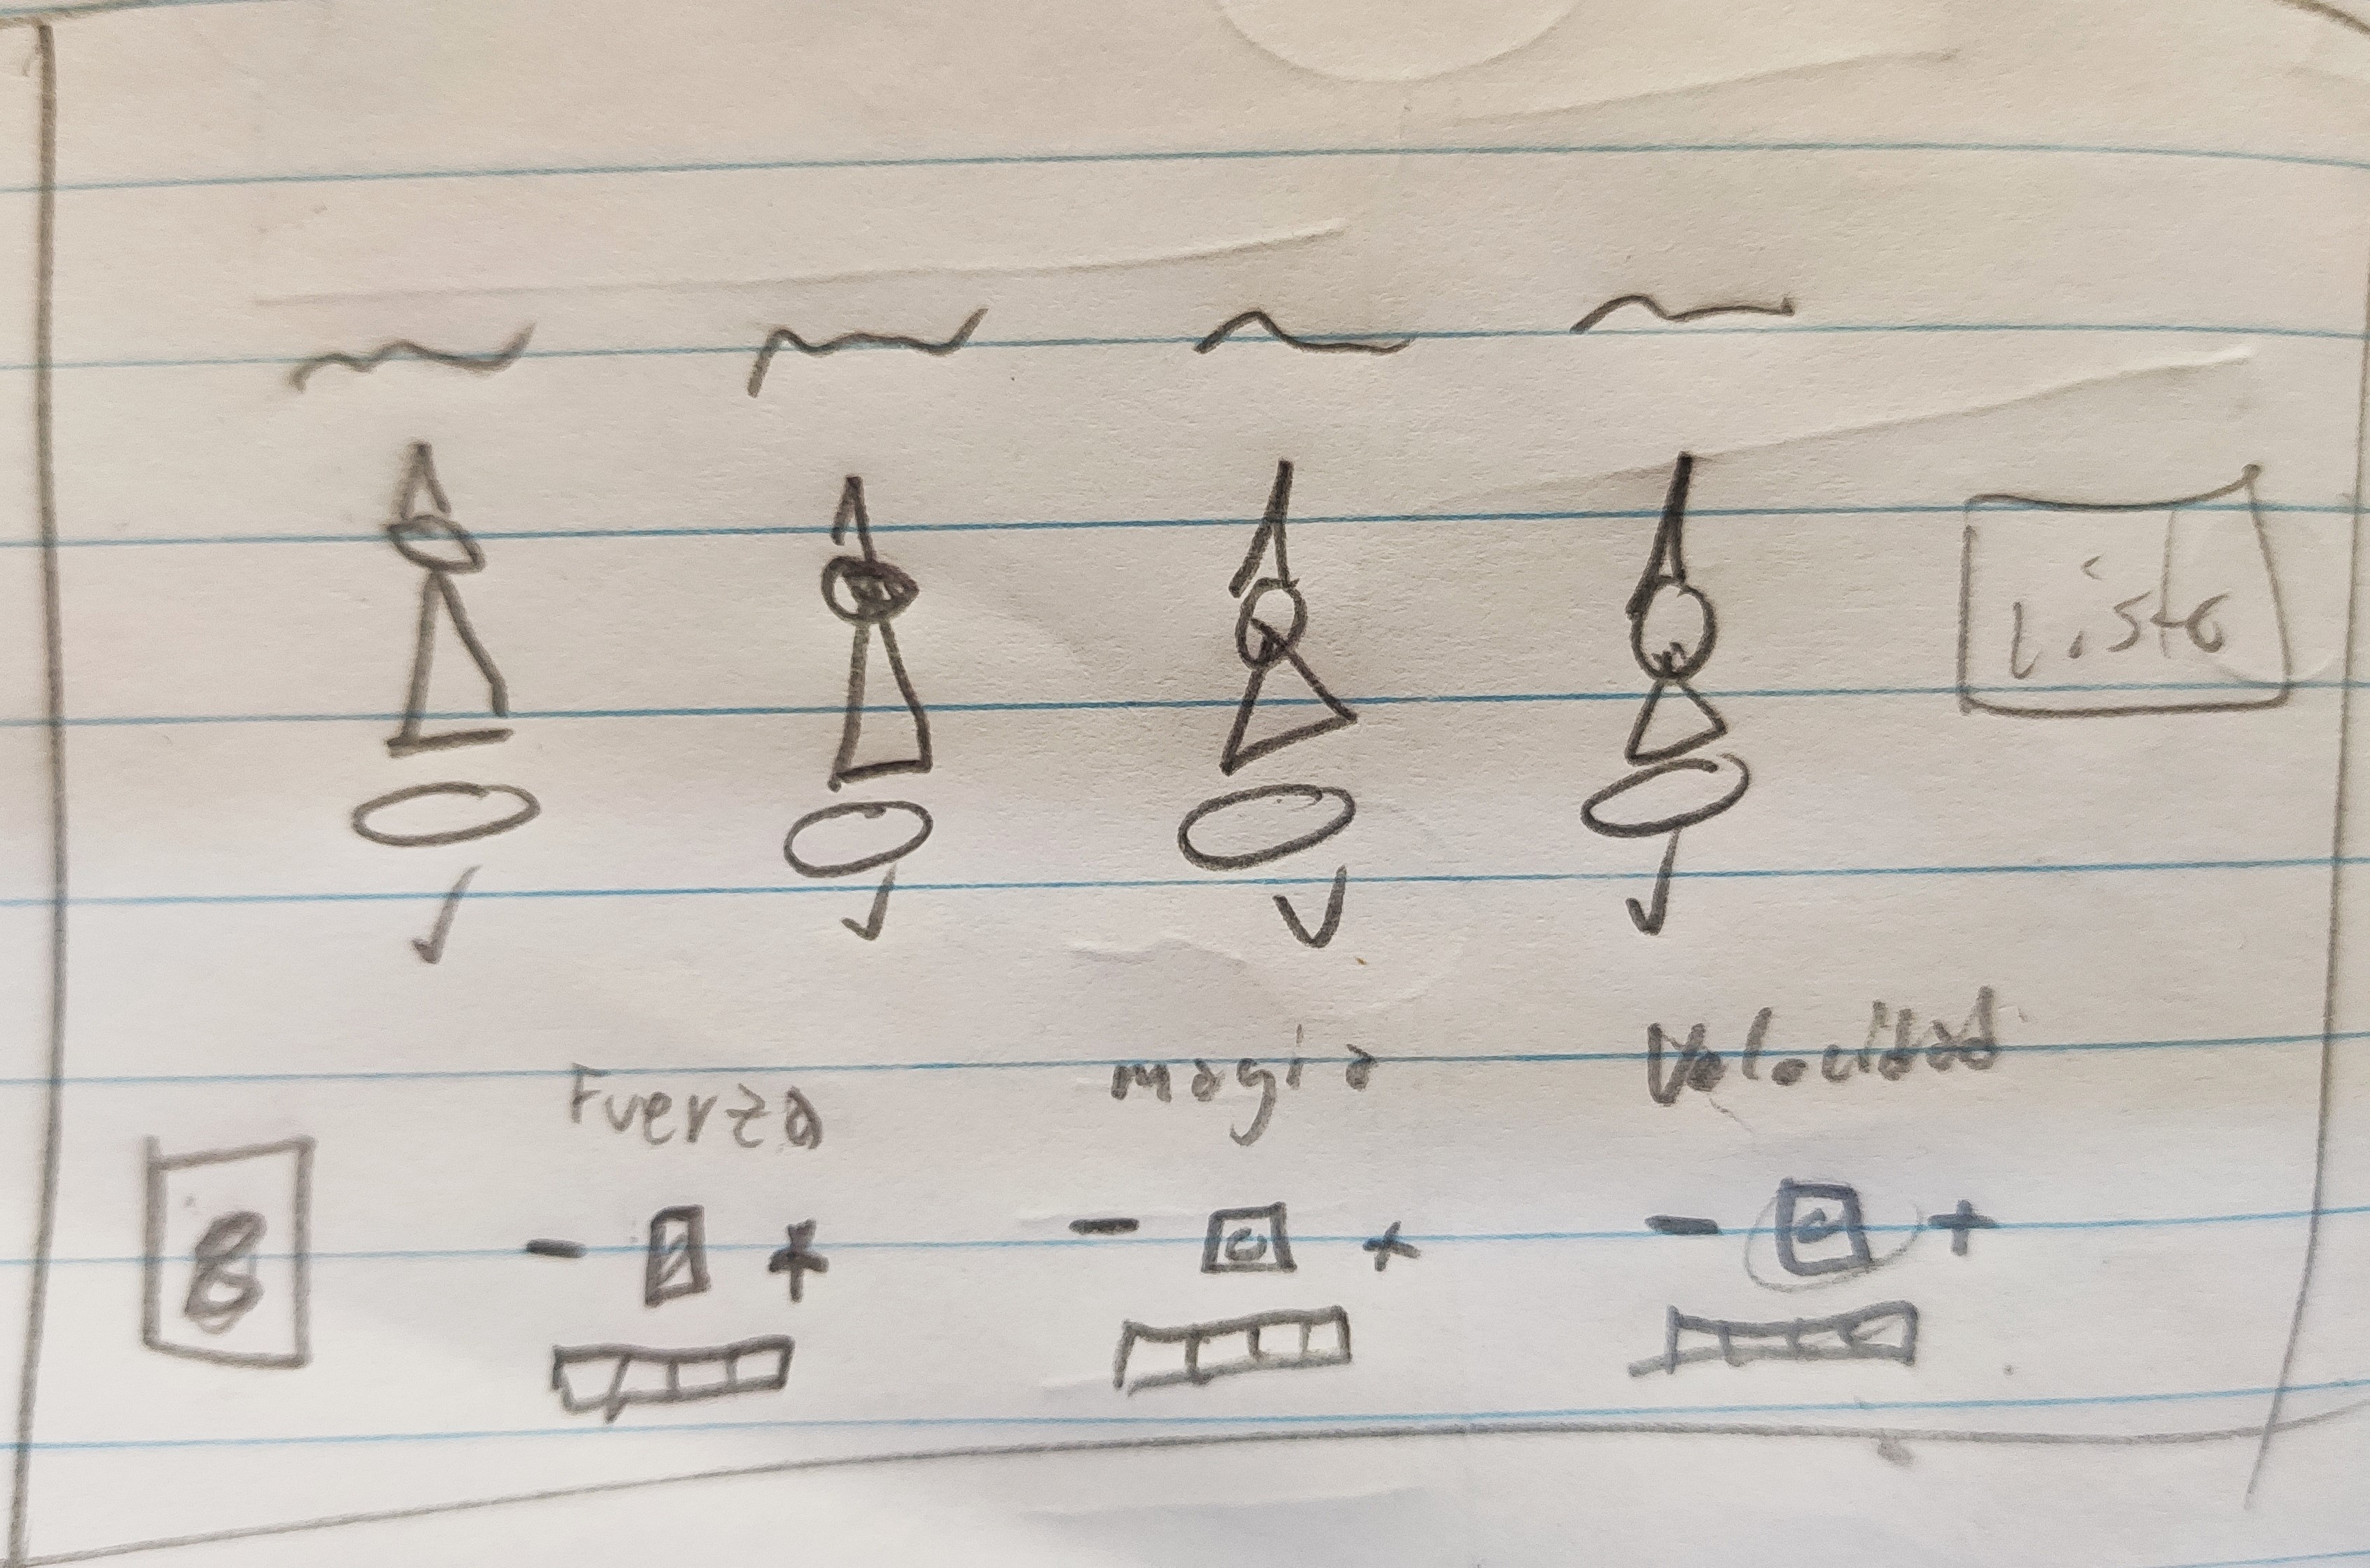 Listo
Fuerza magia Velocidad
8 - +  - +  - +